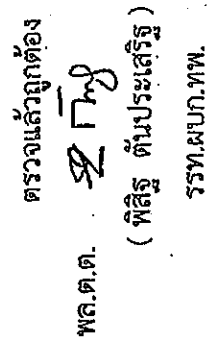 ตรวจแล้วถูกต้อง
พล.ต.ต.
( พิสิฐ ตันประเสริฐ )
รรท.ผบก.ทพ.